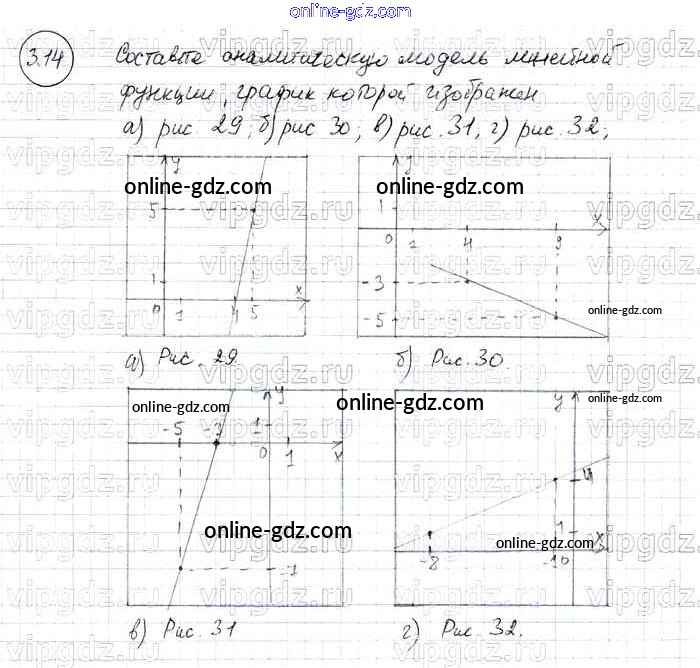 online-gdz.com
3.14 Составьте аналитическую модель линейной
функции, график которой изображен
а) рис. 29; б) рис 30; в) рис. 31; г) рис. 32;
y
online-gdz.com
5
1
0 1 4 5 x
а) Рис. 29
y
online-gdz.com
1
x
0 2 4 9
-3
-5
online-gdz.com
б) Рис. 30.
y
online-gdz.com
-5 -3 1
0 1 x
online-gdz.com
-7
в) Рис. 31
online-gdz.com
y
online-gdz.com
4
1
x
-8 -1 0
online-gdz.com
г) Рис. 32.
vipgdz.ru